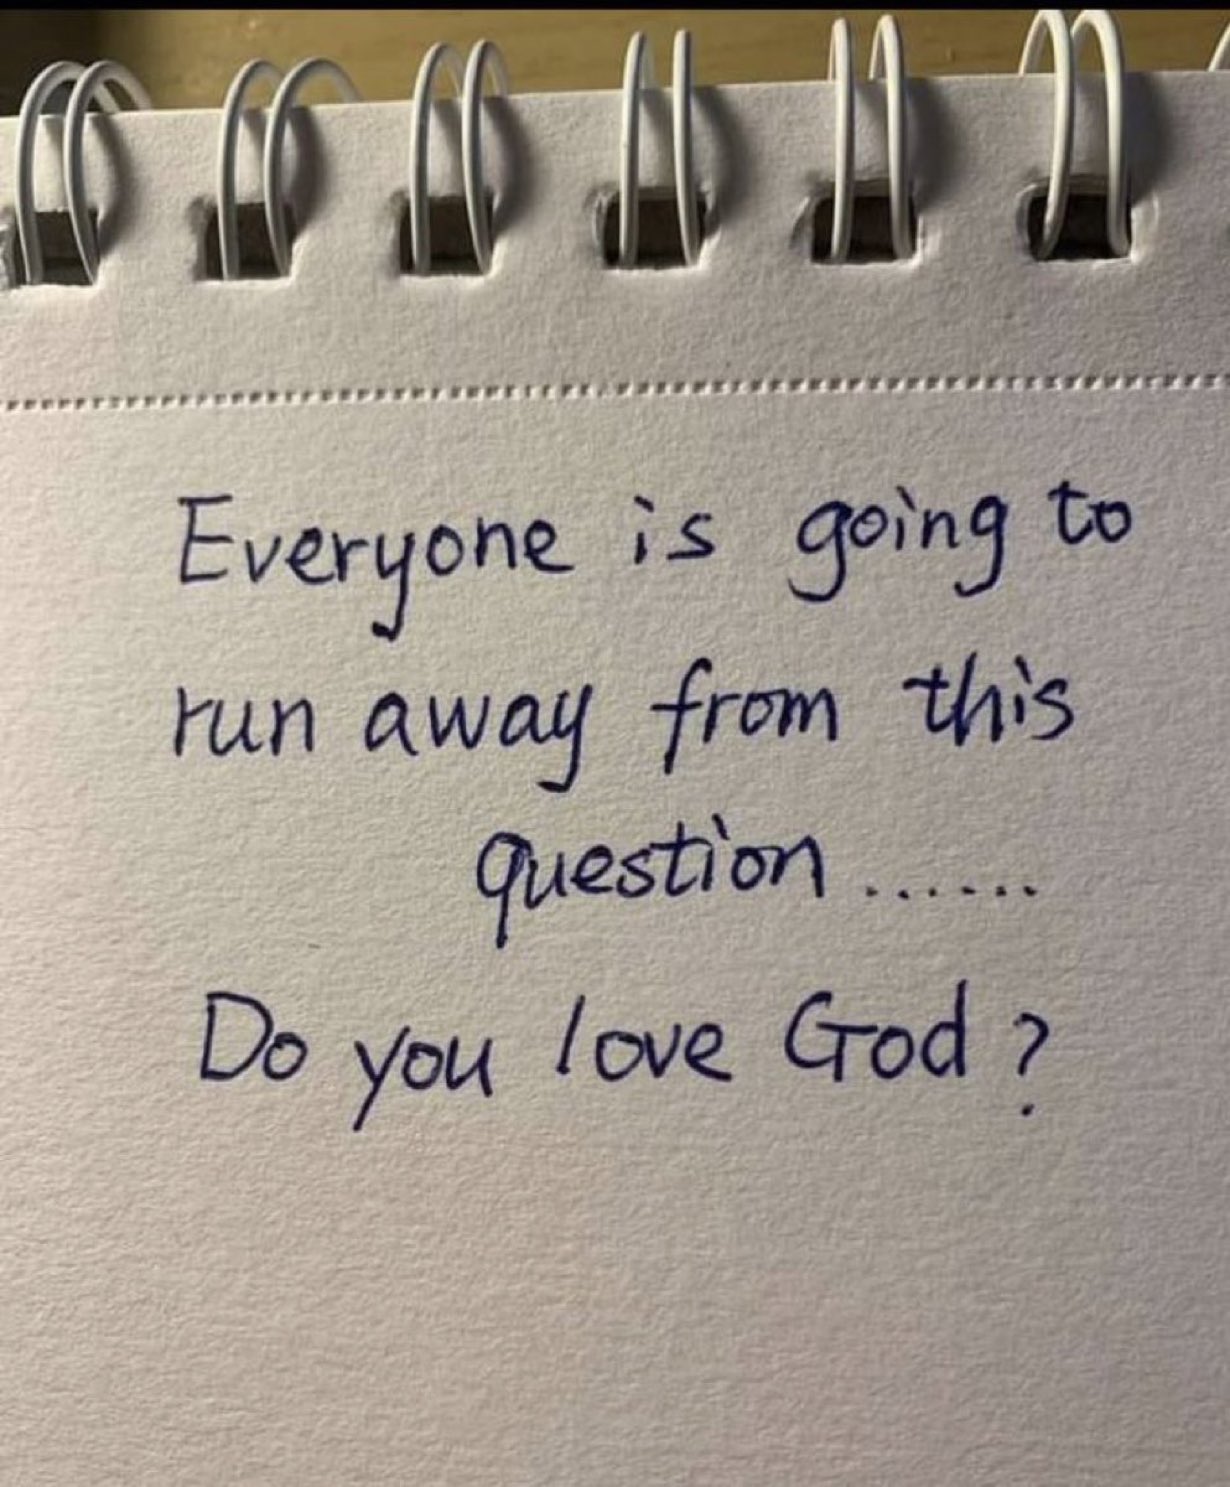 Everyone is going to
run away from this
question......
Do you love God?